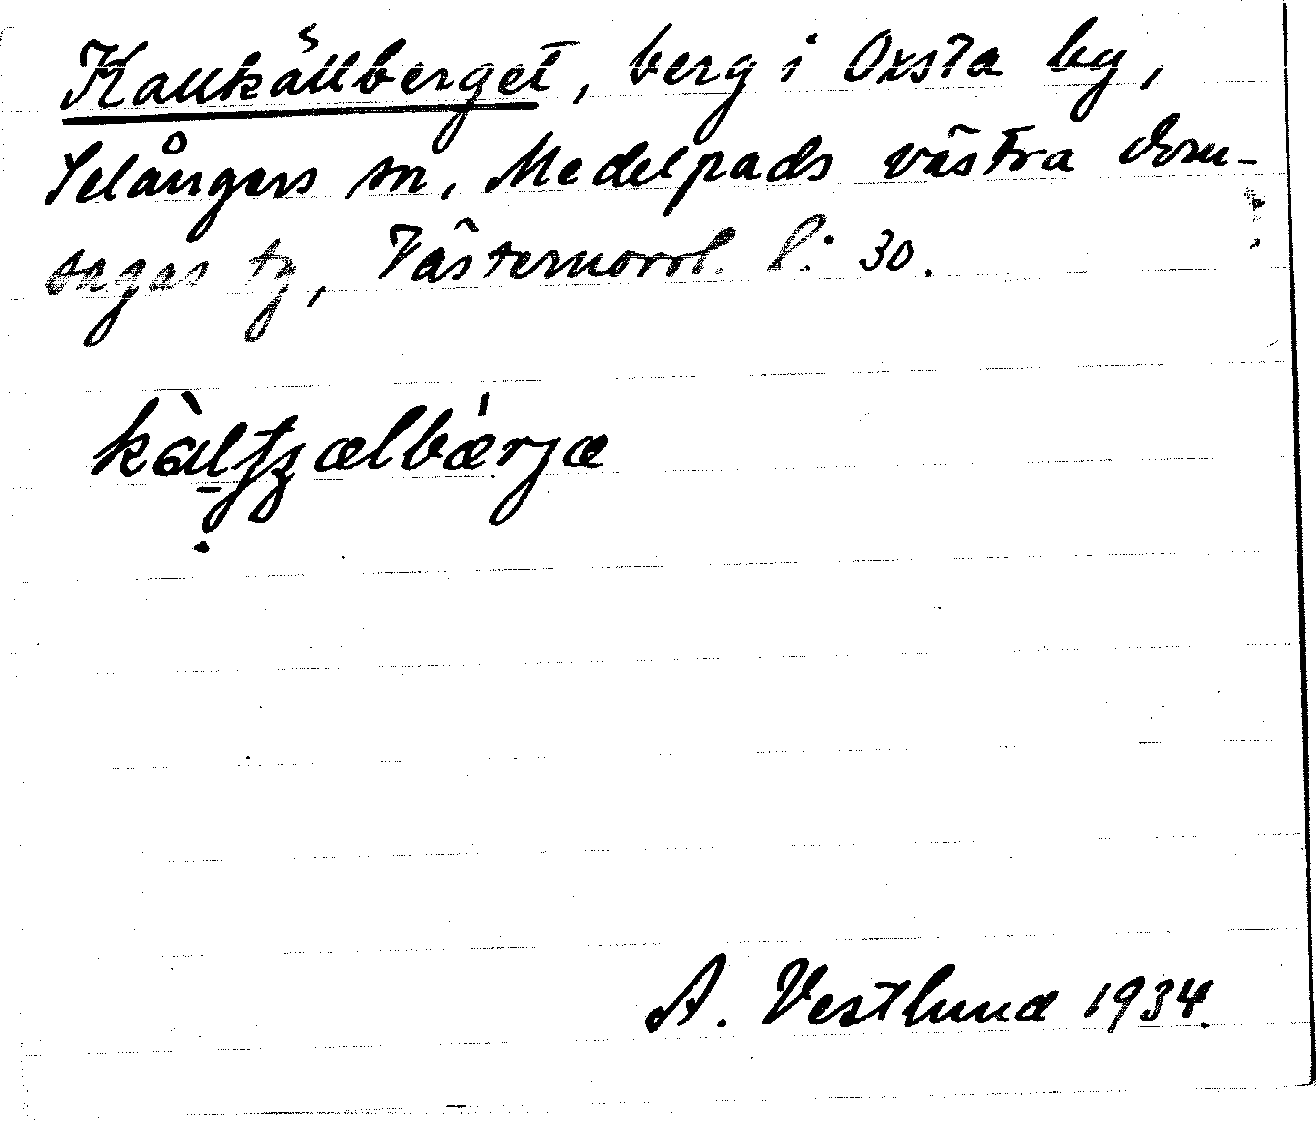 Kallkällberget, berg i Oxsta by,
Selångers sn, Medelpads västra dom-
sagas tg, Västernorrl. l: 30.
A. Vestlund 1934.